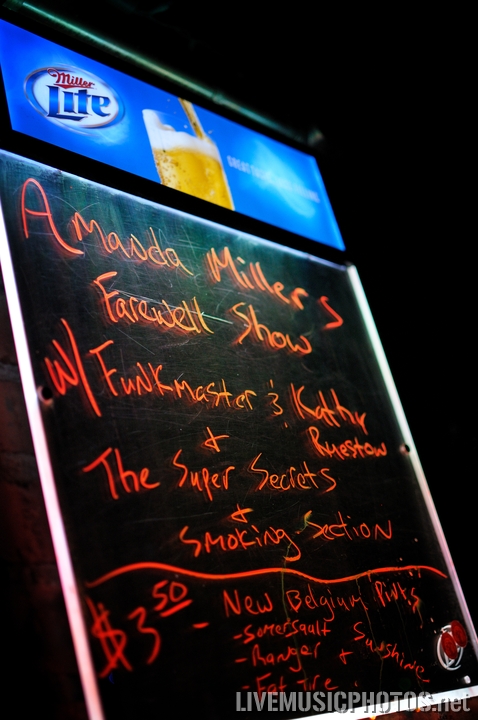 Miller
Lite
GREAT
Amanda Millers
Farewell Show
w/ Funkmaster & Kathy
Ruestow
+
The Super Secrets
+
Smoking Section
$3.50 - New Belgium Pints
- Somersault
- Ranger + Sunshine
- Fat Tire
LIVEMUSICPHOTOS.net